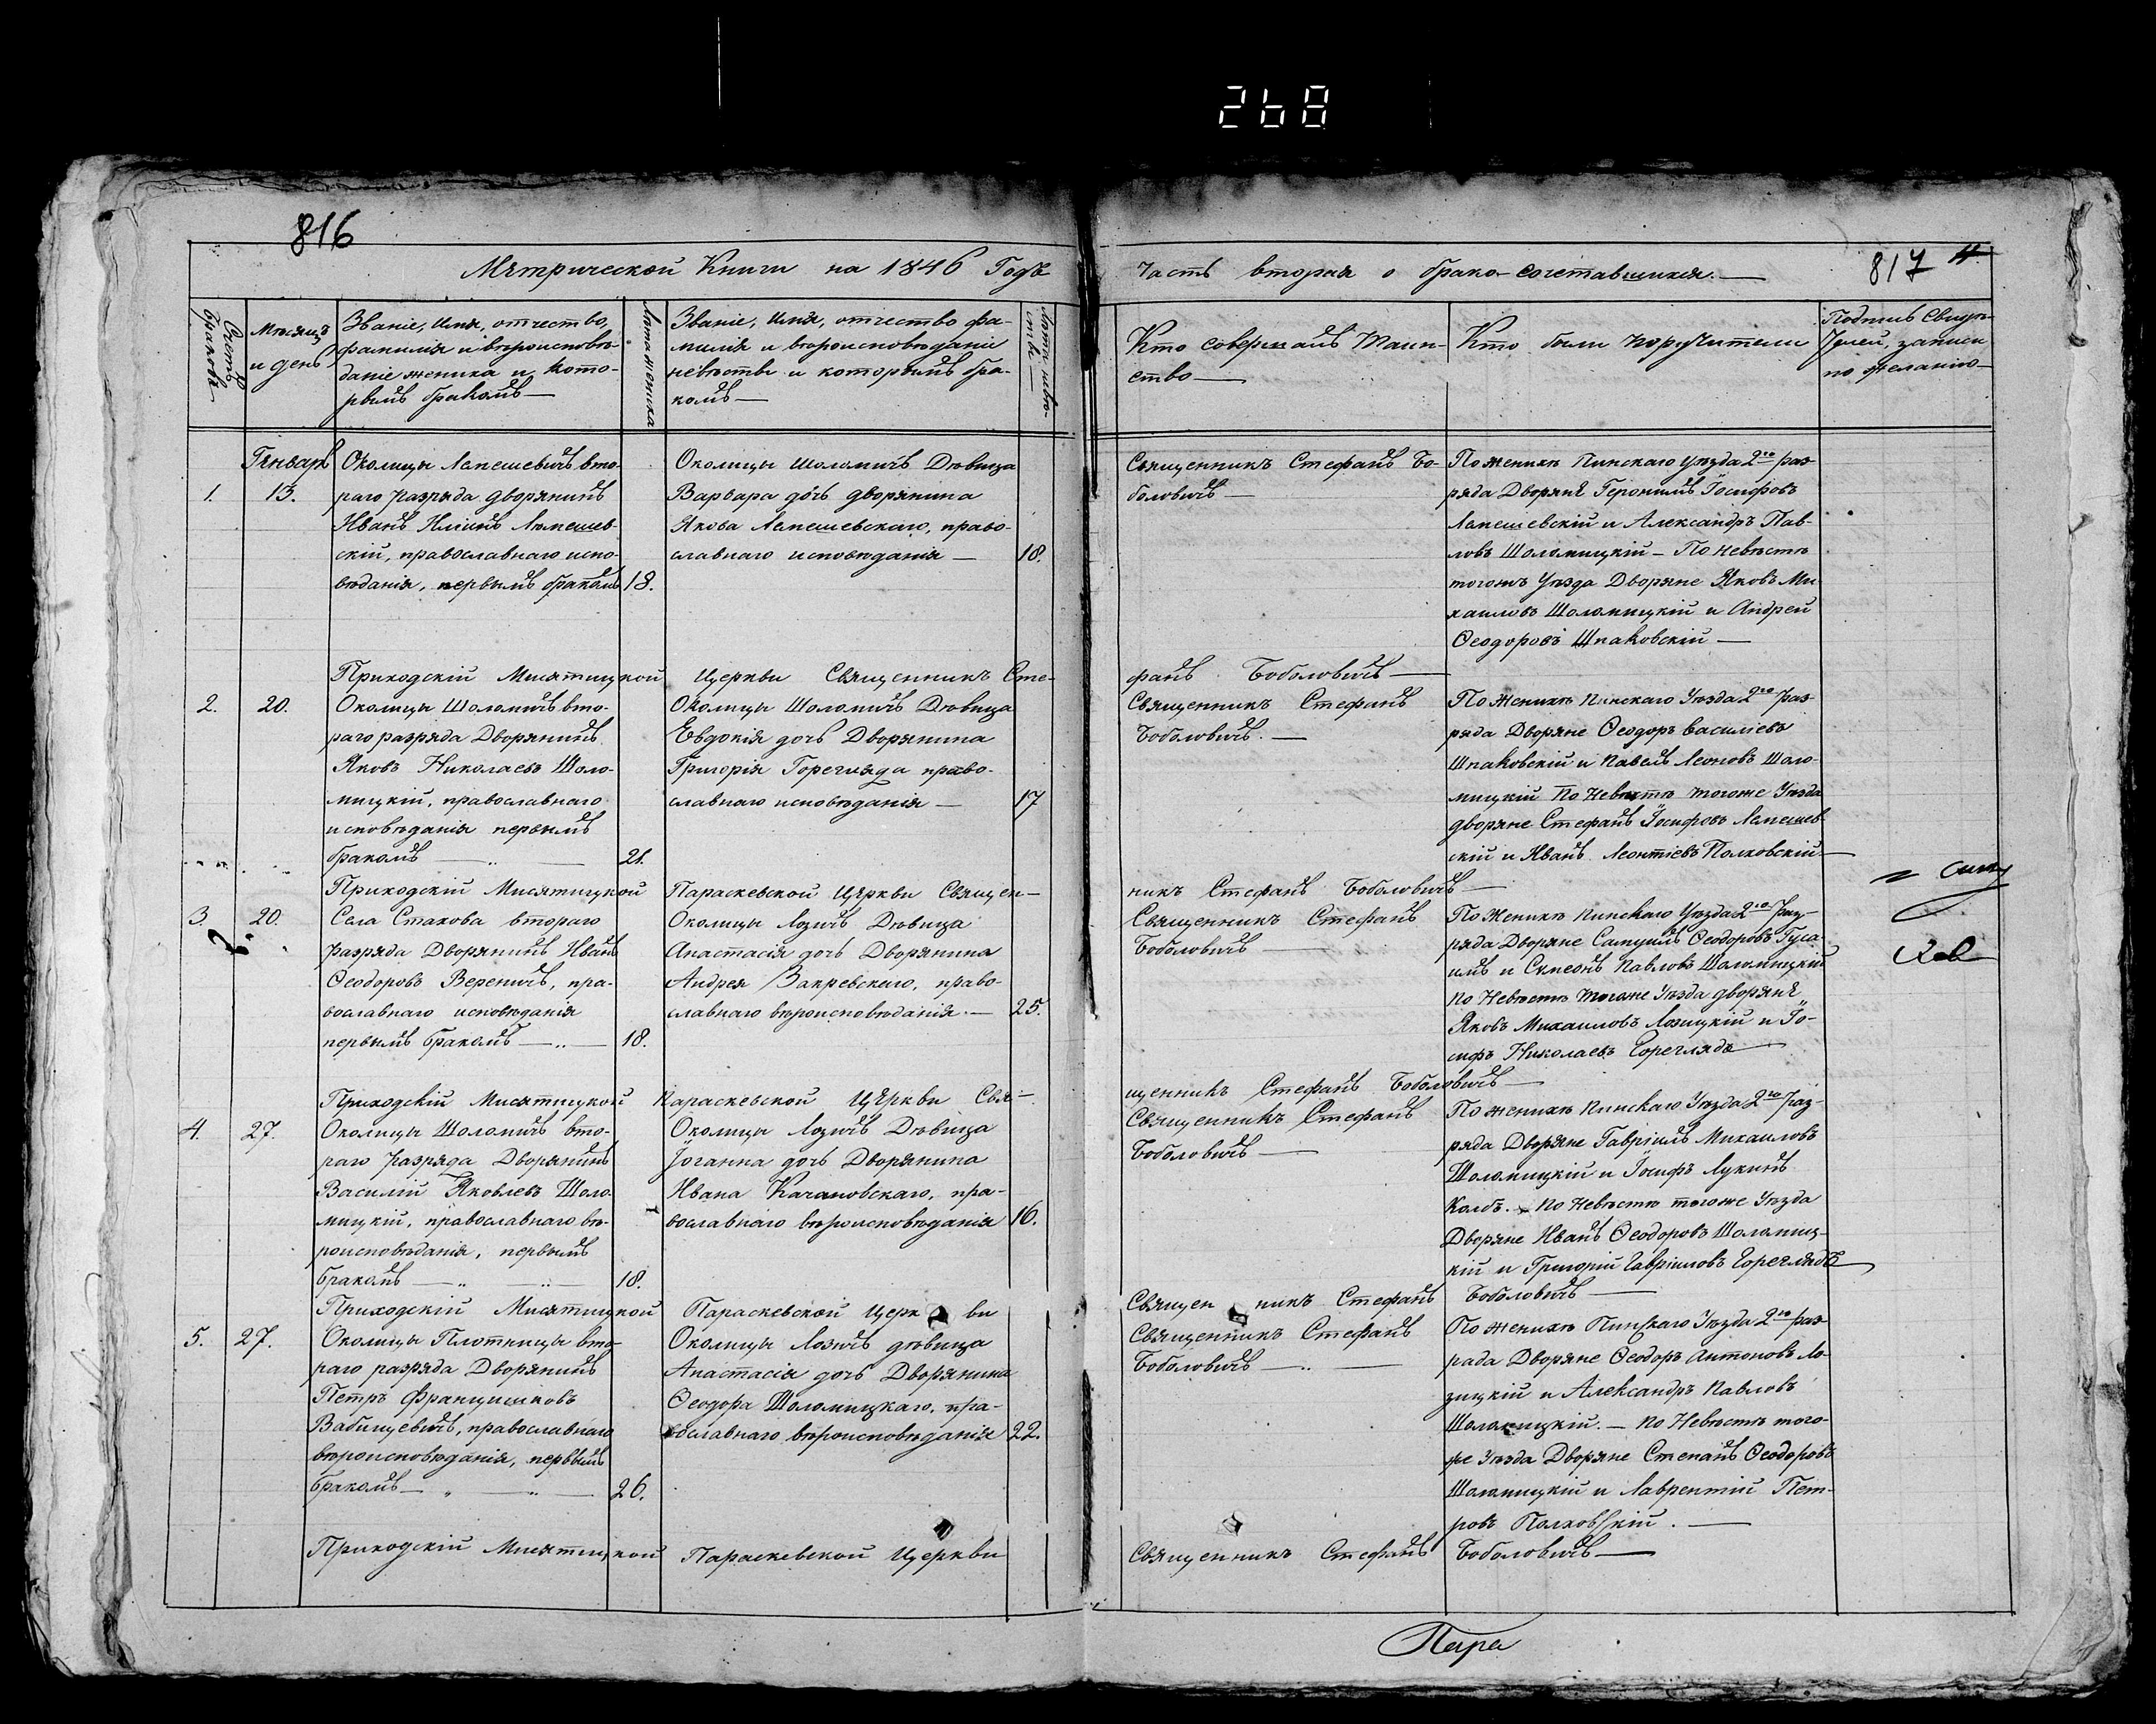 268
816
817
Метрической Книги на 1846 Годъ
Часть вторая о брако-сочетавшихся.—
Счетъ браковъ
Мѣсяцъ
и день
Званіе, имя, отчество,
фамилія и вѣроисповѣ-
даніе жениха и кото-
рымъ бракомъ—
Лѣта жениха
Званіе, имя, отчество фа-
милія и вѣроисповѣданіе
невѣсты и которымъ бра-
комъ—
Лѣта невѣ-
сты—
Кто совершалъ Таин-
ство—
Кто были поручители
Подпись Свидѣ-
телей, записи
по желанію—
1.
Генварь
13.
Околицы Лемешевичъ вто-
раго разряда дворянинъ
Иванъ Иліинъ Лемешев-
скій, православнаго испо-
вѣданія, первымъ бракомъ
18.
Околицы Шоломичъ Дѣвица
Варвара дочь дворянина
Якова Лемешевскаго, право-
славнаго исповѣданія —
18.
Священникъ Стефанъ Бо-
боловичъ —
По женихѣ Пинскаго Уѣзда 2го раз-
ряда Дворяне Геронимъ Іосифовъ
Лемешевскій и Александръ Пав-
ловъ Шоломицкій — По невѣстѣ
тогожъ Уѣзда Дворяне Яковъ Ми-
хаиловъ Шоломицкій и Андрей
Ѳеодоровъ Шпаковскій —
Приходскій Мисятицкой Церкви Священникъ Сте-
фанъ Боболовичъ —
2.
20.
Околицы Шоломичъ вто-
раго разряда Дворянинъ
Яковъ Николаевъ Шоло-
мицкій, православнаго
исповѣданія первымъ
бракомъ —
21.
Околицы Шоломичъ Дѣвица
Евдокія дочь Дворянина
Григорія Горегляда право-
славнаго исповѣданія —
17
Священникъ Стефанъ
Боболовичъ. —
По женихѣ Пинскаго Уѣзда 2го раз-
ряда Дворяне Ѳеодоръ Василіевъ
Шпаковскій и Павелъ Леоновъ Шоло-
мицкій По Невѣстѣ тогоже Уѣзда
дворяне Стефанъ Іосифовъ Лемешев-
скій и Иванъ Леонтіевъ Полховскій—
Приходскій Мисятицкой Параскевской Церкви Священ-
никъ Стефанъ Боболовичъ —
3.
20.
Села Стахова втораго
разряда Дворянинъ Иванъ
Ѳеодоровъ Вереничъ, пра-
вославнаго исповѣданія
первымъ бракомъ —
18.
Околицы Лозичъ Дѣвица
Анастасія дочь Дворянина
Андрея Закревскаго, право-
славнаго вѣроисповѣданія. —
25.
Священникъ Стефанъ
Боболовичъ —
По Женихѣ Пинскаго Уѣзда 2го Раз-
ряда Дворяне Самуилъ Ѳеодоровъ
и Симеонъ Павловъ Шоломицкій
по Невѣстѣ тогоже Уѣзда дворяне
Яковъ Михаиловъ Лозицкій и Іо-
сифъ Николаевъ Горегляда
Приходскій Мисятицкой Параскевской Церкви Свя-
щенникъ Стефанъ Боболовичъ —
4.
27.
Околицы Шоломичъ вто-
раго разряда Дворянинъ
Василій Яковлевъ Шоло-
мицкій, православнаго вѣ-
роисповѣданія, первымъ
бракомъ —
18.
Околицы Лозичъ Дѣвица
Іоганна дочь Дворянина
Ивана Качановскаго, пра-
вославнаго вѣроисповѣданія
16.
Священникъ Стефанъ
Боболовичъ —
По женихѣ Пинскаго Уѣзда 2го Раз-
ряда Дворяне Гавріилъ Михаиловъ
Шоломицкій и Іосифъ Лукинъ
Колбъ. По Невѣстѣ тогоже Уѣзда
Дворяне Иванъ Ѳеодоровъ Шоломиц-
кій и Григорій Гавріиловъ Гореглядъ
Приходскій Мисятицкой Параскевской Церкви
Священникъ Стефанъ Боболовичъ —
5.
27.
Околицы Плотницы вто-
раго разряда Дворянинъ
Петръ Францишковъ
Вабищевичъ, православнаго
вѣроисповѣданія, первымъ
бракомъ —
26.
Околицы Лозичъ дѣвица
Анастасія дочь Дворянина
Ѳеодора Шоломицкаго, пра-
вославнаго вѣроисповѣданія
22.
Священникъ Стефанъ
Боболовичъ —
По женихѣ Пинскаго Уѣзда 2го раз-
ряда Дворяне Ѳеодоръ Антоновъ Ло-
зицкій и Александръ Павловъ
Шоломицкій. — По Невѣстѣ того-
же Уѣзда Дворяне Степанъ Ѳеодоровъ
Шоломицкій и Лаврентій Пет-
ровъ Полховскій. —
Приходскій Мисятицкой Параскевской Церкви
Священникъ Стефанъ Боболовичъ —